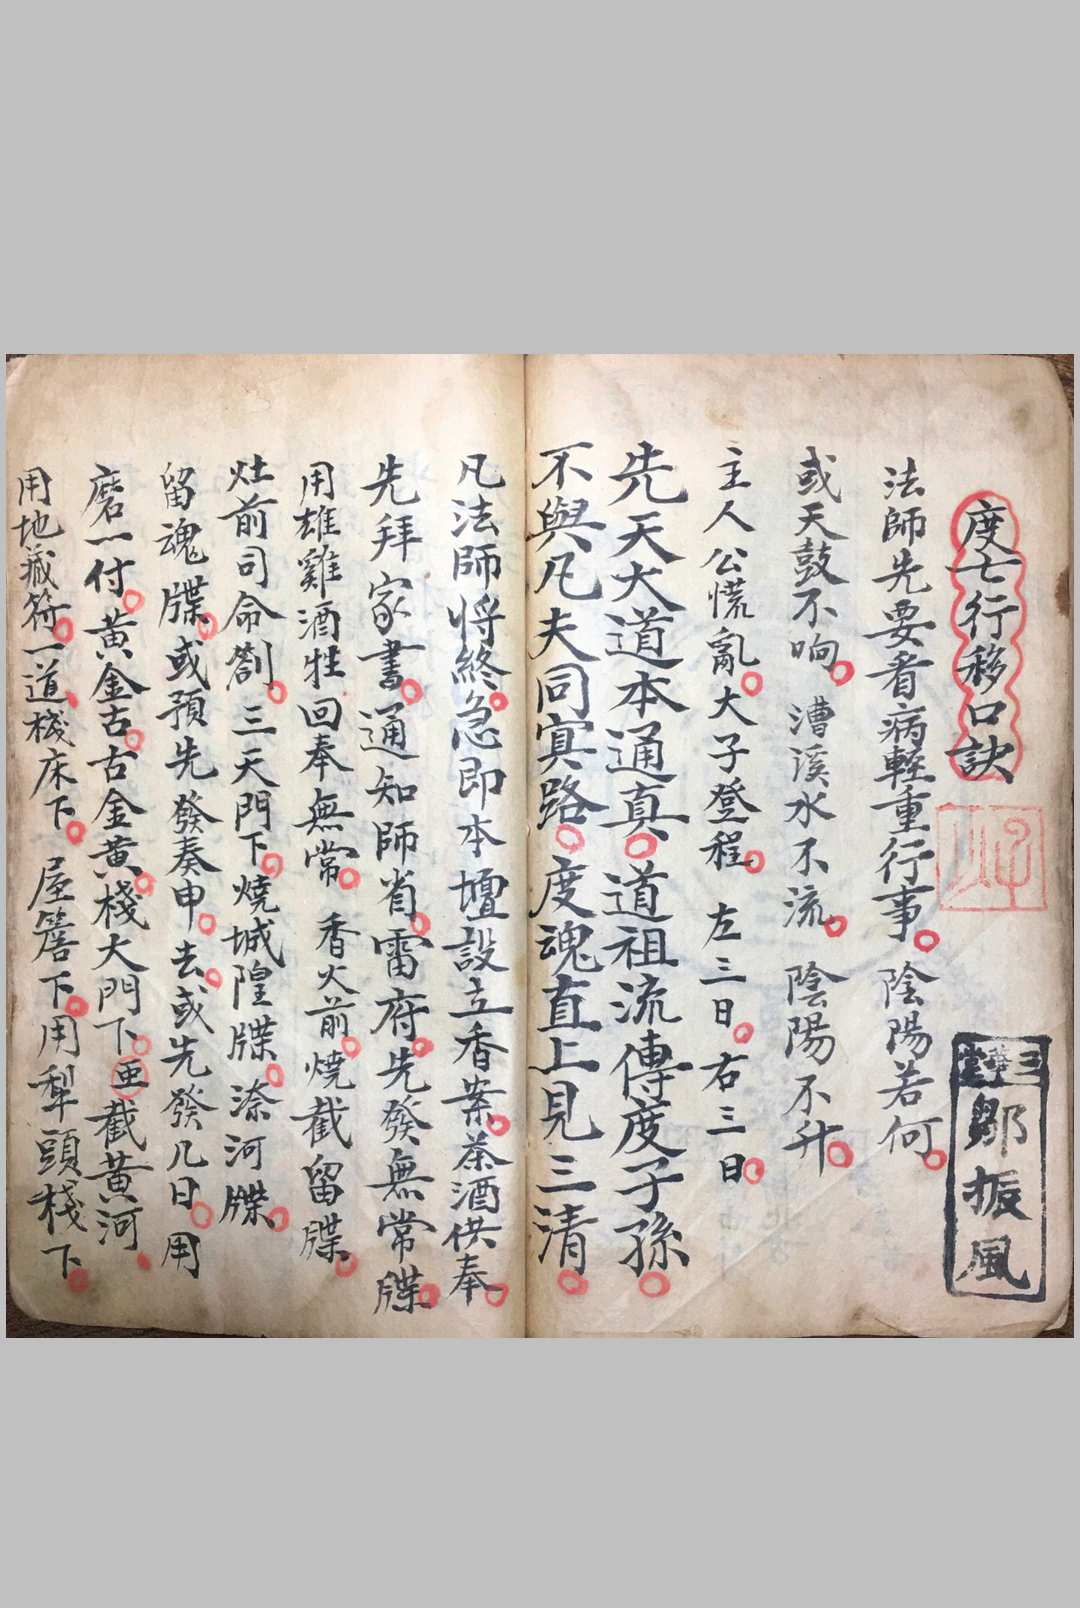 度亡行移口訣
三華堂
鄒振風
法師先要看病輕重行事陰陽若何
或天鼓不响漕溪水不流陰陽不升
主人公慌亂大子登程左三日右三日
先天大道本通真道祖流傳度子孫
不與凡夫同寘路度魂直上見三清
凡法師将終急即本壇設立香案茶酒供奉
先拜家書通知師省雷府先發無常牒
用雄雞酒牲回奉無常香火前燒截留牒
灶前司命劄三天門下燒城隍牒渿河牒
留魂牒或預先發奏申去或先發几日用
磨一付黃金古古金黃棧大門下亜截黃河
用地藏符一道棧床下屋簷下用犁頭棧下